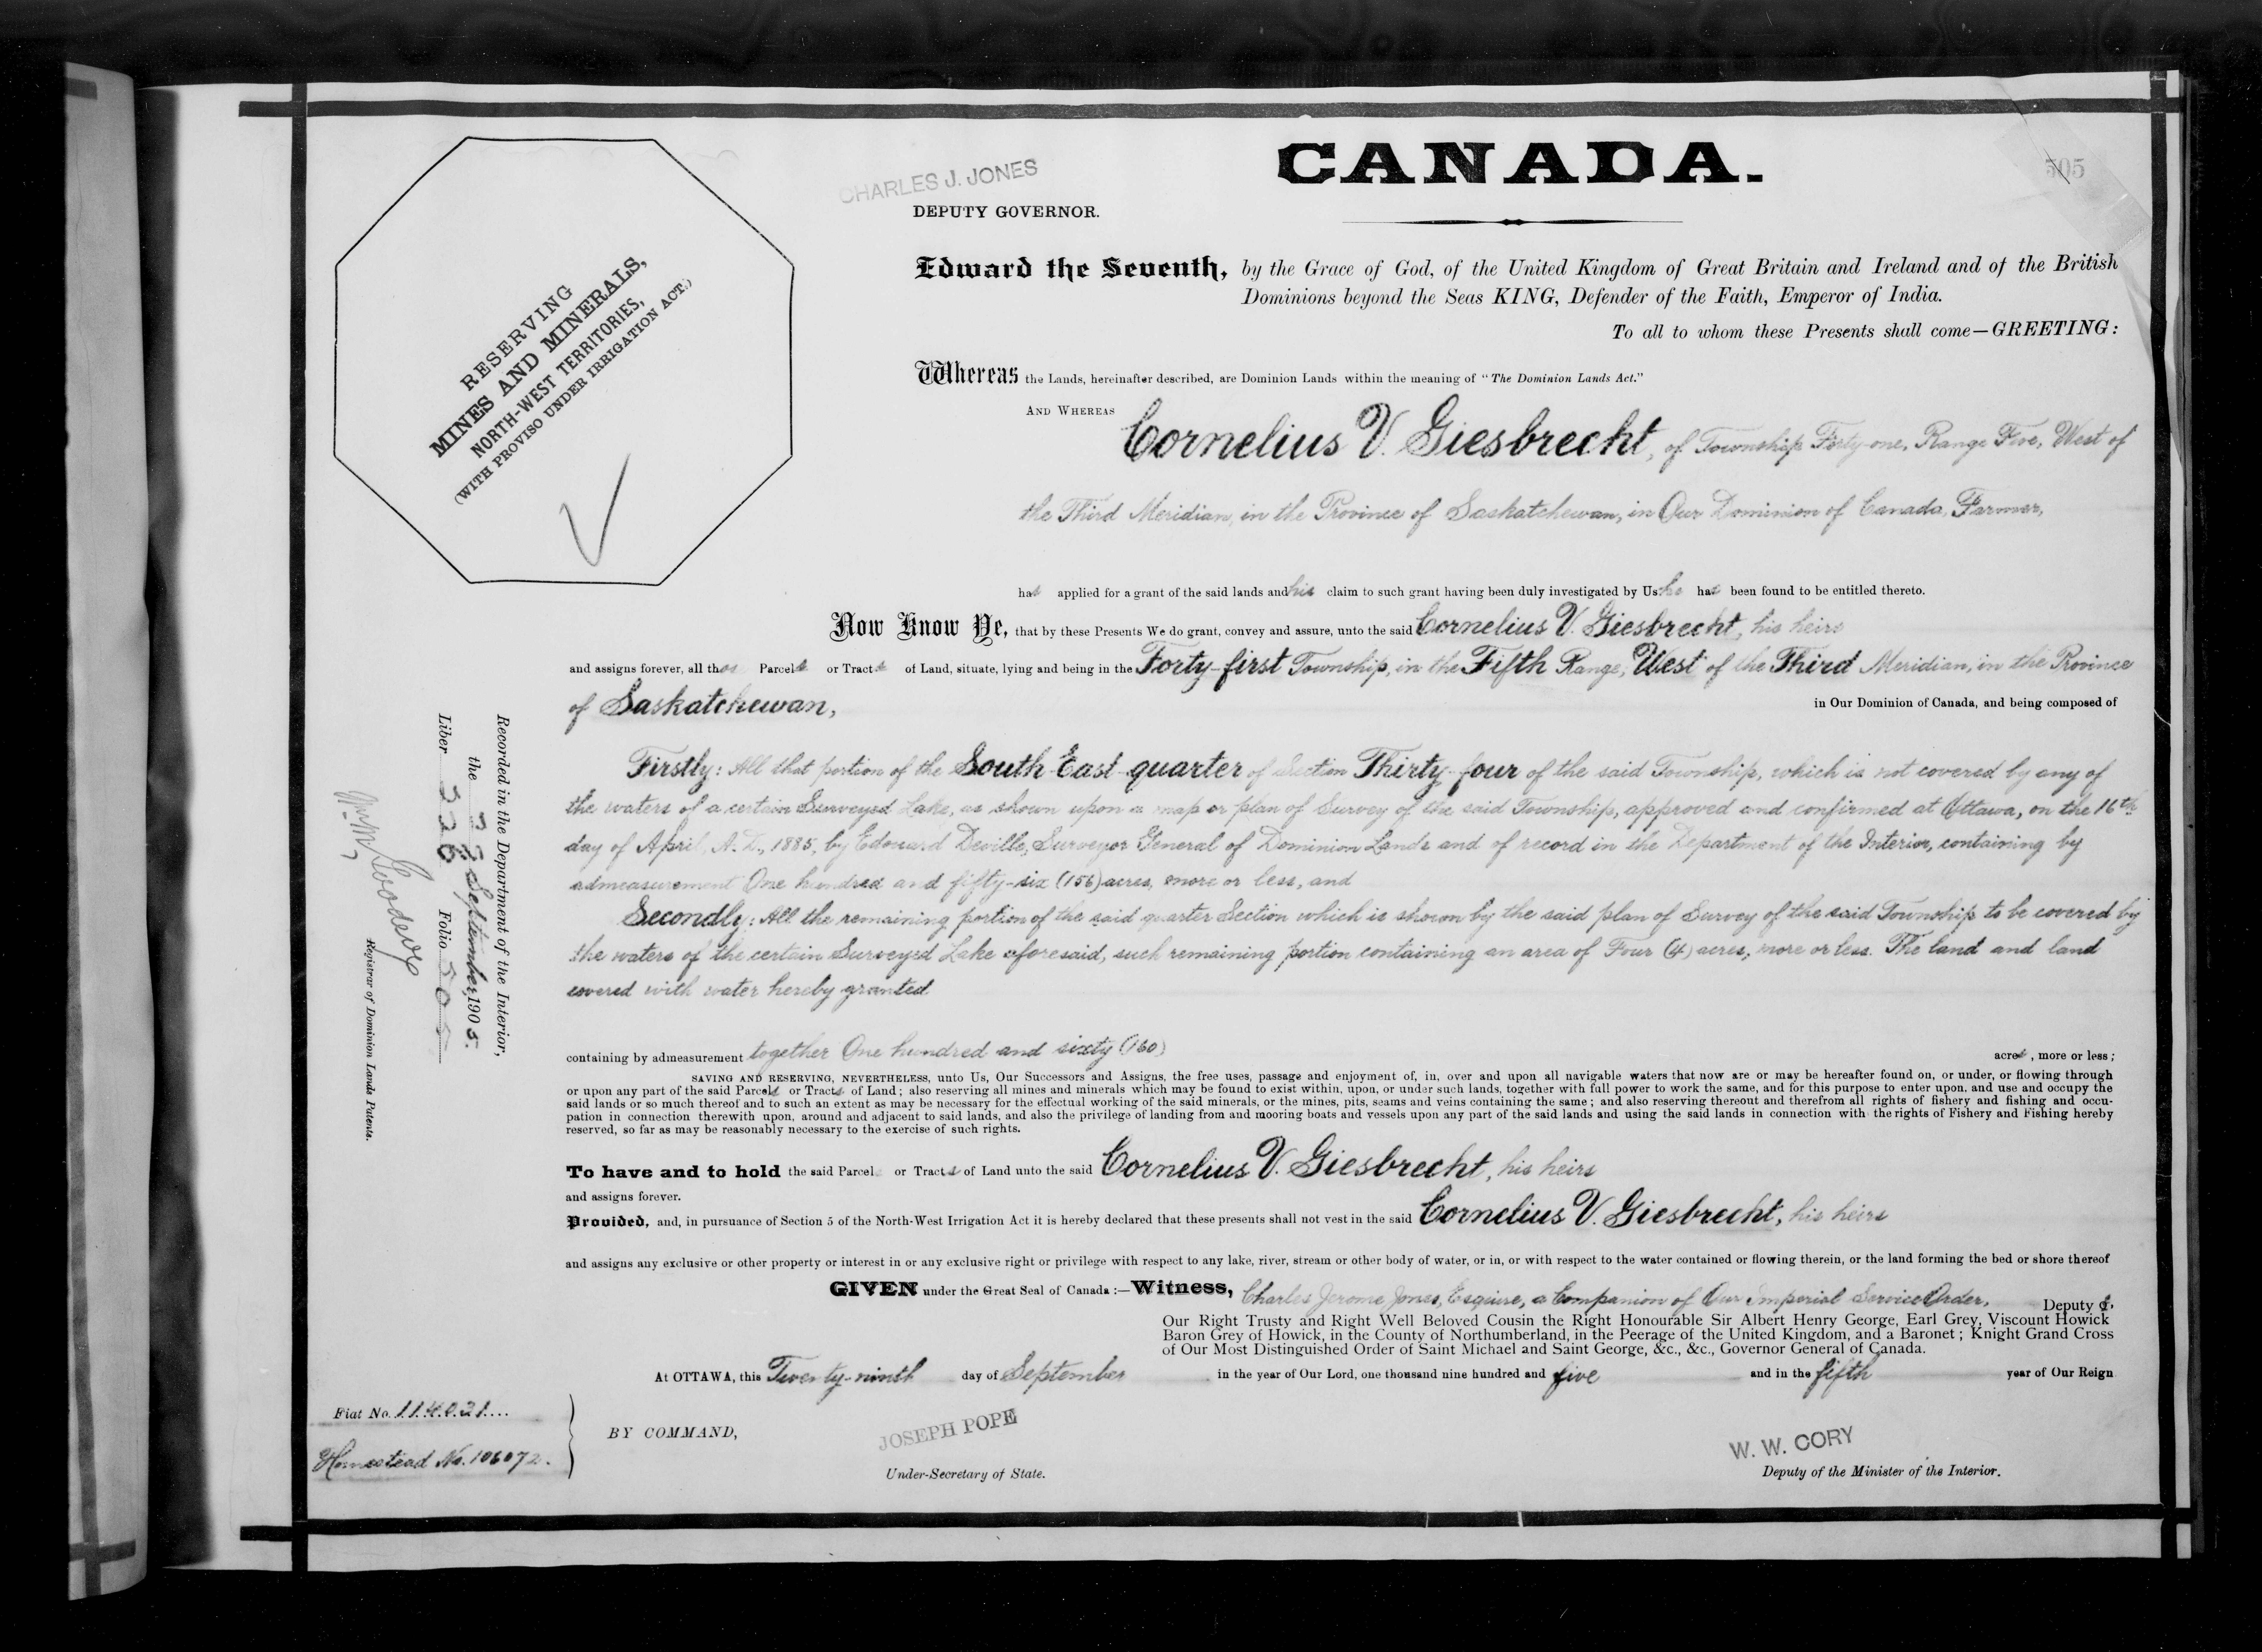 CANADA.
505
CHARLES J. JONES
DEPUTY GOVERNOR.
RESERVING
MINES AND MINERALS,
NORTH-WEST TERRITORIES,
(WITH PROVISO UNDER IRRIGATION ACT.)
Edward the Seventh, by the Grace of God, of the United Kingdom of Great Britain and Ireland and of the British
Dominions beyond the Seas KING, Defender of the Faith, Emperor of India.
To all to whom these Presents shall come—GREETING:
Whereas the Lands, hereinafter described, are Dominion Lands within the meaning of "The Dominion Lands Act."
AND WHEREAS Cornelius V. Giesbrecht, of Township Forty-one, Range Five, West of
the Third Meridian, in the Province of Saskatchewan, in Our Dominion of Canada, Farmer,
has applied for a grant of the said lands and his claim to such grant having been duly investigated by Us he has been found to be entitled thereto.
Now Know Ye, that by these Presents We do grant, convey and assure, unto the said Cornelius V. Giesbrecht, his heirs
and assigns forever, all those Parcels or Tracts of Land, situate, lying and being in the Forty-first Township, in the Fifth Range, West of the Third Meridian, in the Province
of Saskatchewan, in Our Dominion of Canada, and being composed of
Firstly: All that portion of the South East quarter of Section Thirty-four of the said Township, which is not covered by any of
the waters of a certain Surveyed Lake, as shown upon a map or plan of Survey of the said Township, approved and confirmed at Ottawa, on the 16th
day of April, A.D., 1885, by Edouard Deville, Surveyor General of Dominion Lands and of record in the Department of the Interior, containing by
admeasurement One hundred and fifty-six (156) acres, more or less, and
Secondly: All the remaining portion of the said quarter Section which is shown by the said plan of Survey of the said Township to be covered by
the waters of the certain Surveyed Lake aforesaid, such remaining portion containing an area of Four (4) acres, more or less. The land and land
covered with water hereby granted
containing by admeasurement together One hundred and sixty (160) acres, more or less;
SAVING AND RESERVING, NEVERTHELESS, unto Us, Our Successors and Assigns, the free uses, passage and enjoyment of, in, over and upon all navigable waters that now are or may be hereafter found on, or under, or flowing through
or upon any part of the said Parcels or Tracts of Land; also reserving all mines and minerals which may be found to exist within, upon, or under such lands, together with full power to work the same, and for this purpose to enter upon, and use and occupy the
said lands or so much thereof and to such an extent as may be necessary for the effectual working of the said minerals, or the mines, pits, seams and veins containing the same; and also reserving thereout and therefrom all rights of fishery and fishing and occu-
pation in connection therewith upon, around and adjacent to said lands, and also the privilege of landing from and mooring boats and vessels upon any part of the said lands and using the said lands in connection with the rights of Fishery and Fishing hereby
reserved, so far as may be reasonably necessary to the exercise of such rights.
To have and to hold the said Parcels or Tracts of Land unto the said Cornelius V. Giesbrecht, his heirs
and assigns forever.
Provided, and, in pursuance of Section 5 of the North-West Irrigation Act it is hereby declared that these presents shall not vest in the said Cornelius V. Giesbrecht, his heirs
and assigns any exclusive or other property or interest in or any exclusive right or privilege with respect to any lake, river, stream or other body of water, or in, or with respect to the water contained or flowing therein, or the land forming the bed or shore thereof
GIVEN under the Great Seal of Canada:—Witness, Charles Jerome Jones, Esquire, a Companion of Our Imperial Service Order, Deputy of
Our Right Trusty and Right Well Beloved Cousin the Right Honourable Sir Albert Henry George, Earl Grey, Viscount Howick
Baron Grey of Howick, in the County of Northumberland, in the Peerage of the United Kingdom, and a Baronet; Knight Grand Cross
of Our Most Distinguished Order of Saint Michael and Saint George, &c., &c., Governor General of Canada.
At OTTAWA, this Twenty-ninth day of September in the year of Our Lord, one thousand nine hundred and five and in the fifth year of Our Reign
BY COMMAND,
JOSEPH POPE
Under-Secretary of State.
W. W. CORY
Deputy of the Minister of the Interior.
Fiat No. 114021
Homestead No. 106072.
Recorded in the Department of the Interior,
the September, 1905.
Liber 326 Folio 505
Registrar of Dominion Lands Patents.